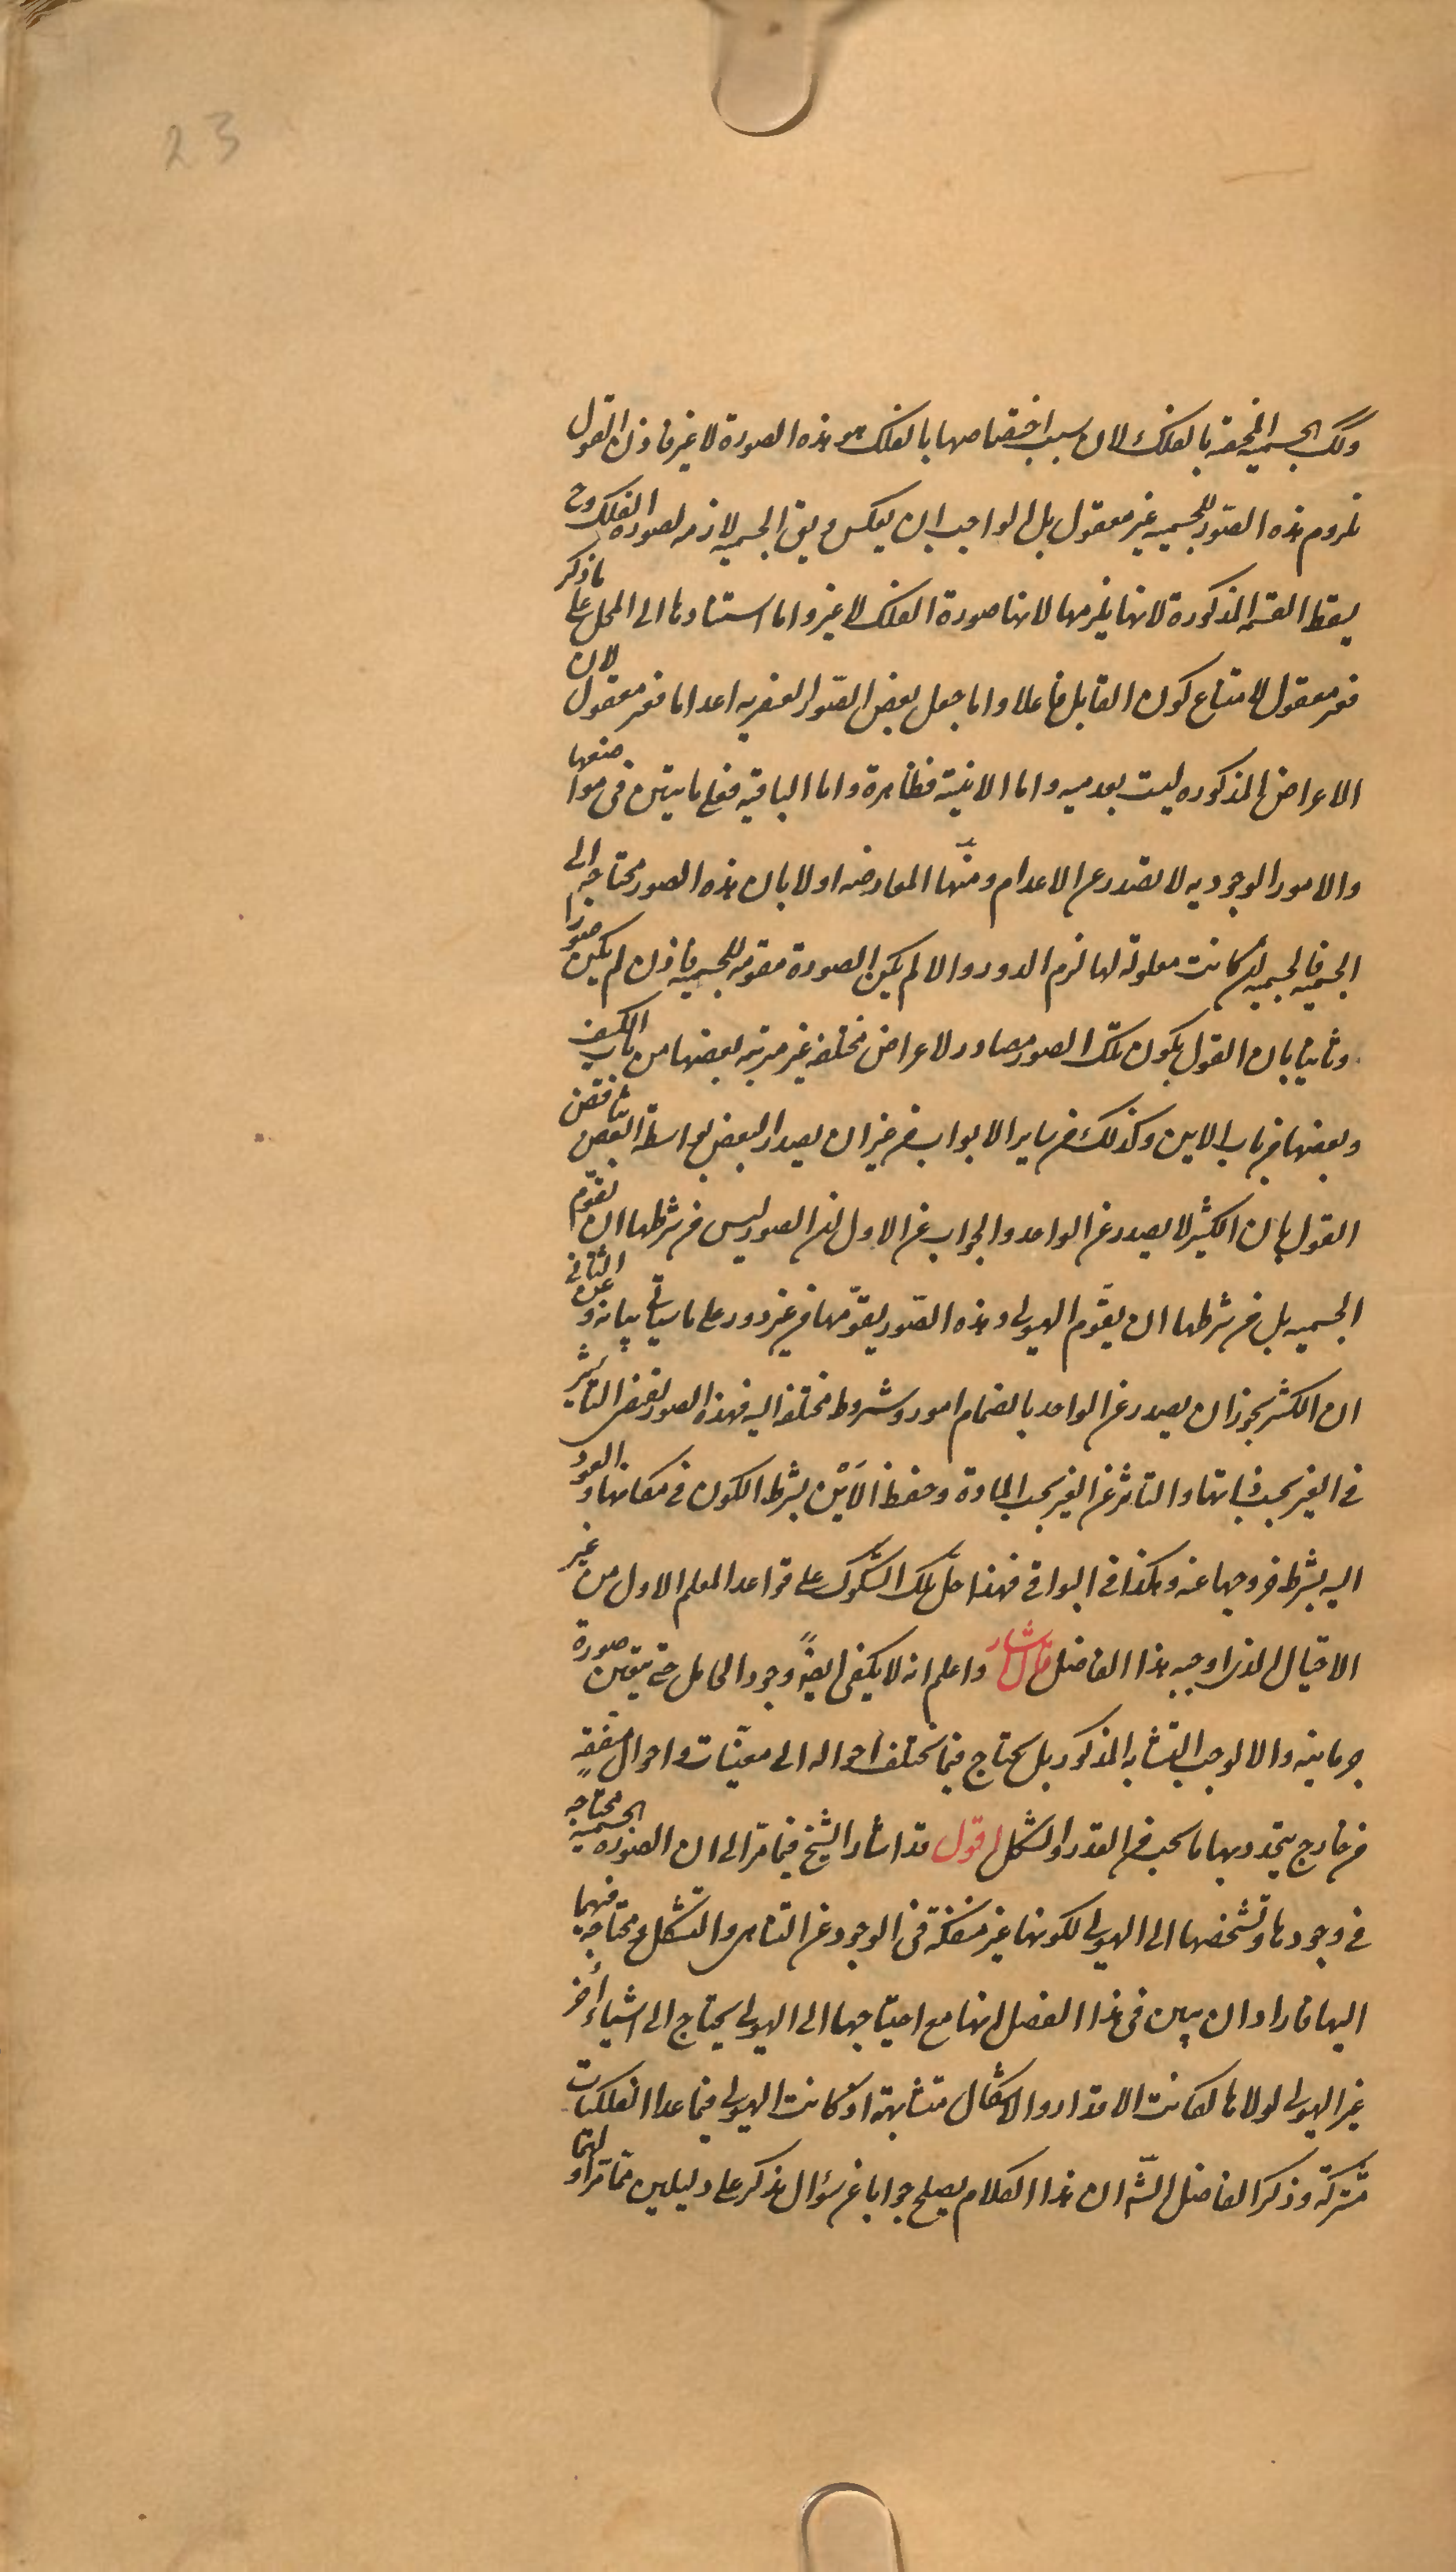 23
وتلك الجسمية المختصة بالفلك لان سبب اختصاصها بالفلك هو هذه الصورة لا غير فاذن القول
بلزوم هذه الصور للجسميه غير معقول بل الواجب ان يعكس ويق الجسميه لازمه لصوره الفلك وح
يسقط القسمه المذكورة لانها يلزمها لانها صورة الفلك لا غير واما استنادها الى المحل على ما ذكر
فغير معقول لامتناع كون القابل فاعلا واما جعل بعض الصور العنصريه اعداما فغير معقول لان
الاعراض المذكوره ليست بعدميه واما الاينية فظاهرة واما الباقيه فعلى ما يتبين فى مواضعها
والامور الوجوديه لا تصدر عن الاعدام ومنها المعارضه اولا بان هذه الصور محتاجه الى
الجسميه فالجسميه ان كانت معلولة لها لزم الدور والا لم يكن الصورة مقومه للجسميه فاذن لم يكن صورا
وثانيا بان القول بكون تلك الصور مصادر لاعراض مختلفه غير مرتبه بعضها من باب الكيف
وبعضها من باب الاين وكذلك من ساير الابواب من غير ان يصدر البعض بواسطة البعض يناقض
القول بان الكثير لا يصدر عن الواحد والجواب عن الاول ان الصور ليس من شرطها ان تقوم
الجسميه بل من شرطها ان يقوم الهيولى وهذه الصور يقومها من غير دور على ما سياتى بيانه وعن الثانى
ان الكثير يجوز ان يصدر عن الواحد بانضمام امور وشروط مختلفه اليه فهذه الصور تقتضى التاثير
فى الغير بحسب ذاتها والتاثر عن الغير بحسب المادة وحفظ الاين بشرط الكون فى مكانها والعود
اليه بشرط خروجها عنه وهكذا فى البواقى فهذا حل تلك الشكوك على قواعد المعلم الاول من غير
الاحتيال الذى اوجبه هذا الفاضل قال اشار واعلم انه لا يكفى ايضا وجود الحامل حتى يتعين صورة
جرمانيه والا لوجب التشابه المذكور بل يحتاج فيما يختلف احواله الى معينات واحوال متفقه
من خارج يتحدد بها ما يجب من القدر والشكل اقول قد اشار الشيخ فيما مر الى ان الصوره الجسميه محتاجه
فى وجودها وتشخصها الى الهيولى لكونها غير منفكة فى الوجود عن التناهى والتشكل ومحتاجه فيهما
اليها فاراد ان يبين فى هذا الفصل انها مع احتياجها الى الهيولى يحتاج الى اشياء أخر
غير الهيولى لولاها لكانت الاقدار والاشكال متشابهة اذ كانت الهيولى فيما عدا الفلكيات
مشتركة وذكر الفاضل الشه ان هذا الكلام يصلح جوابا عن سؤال يذكر على دليلين مما مر اولهما